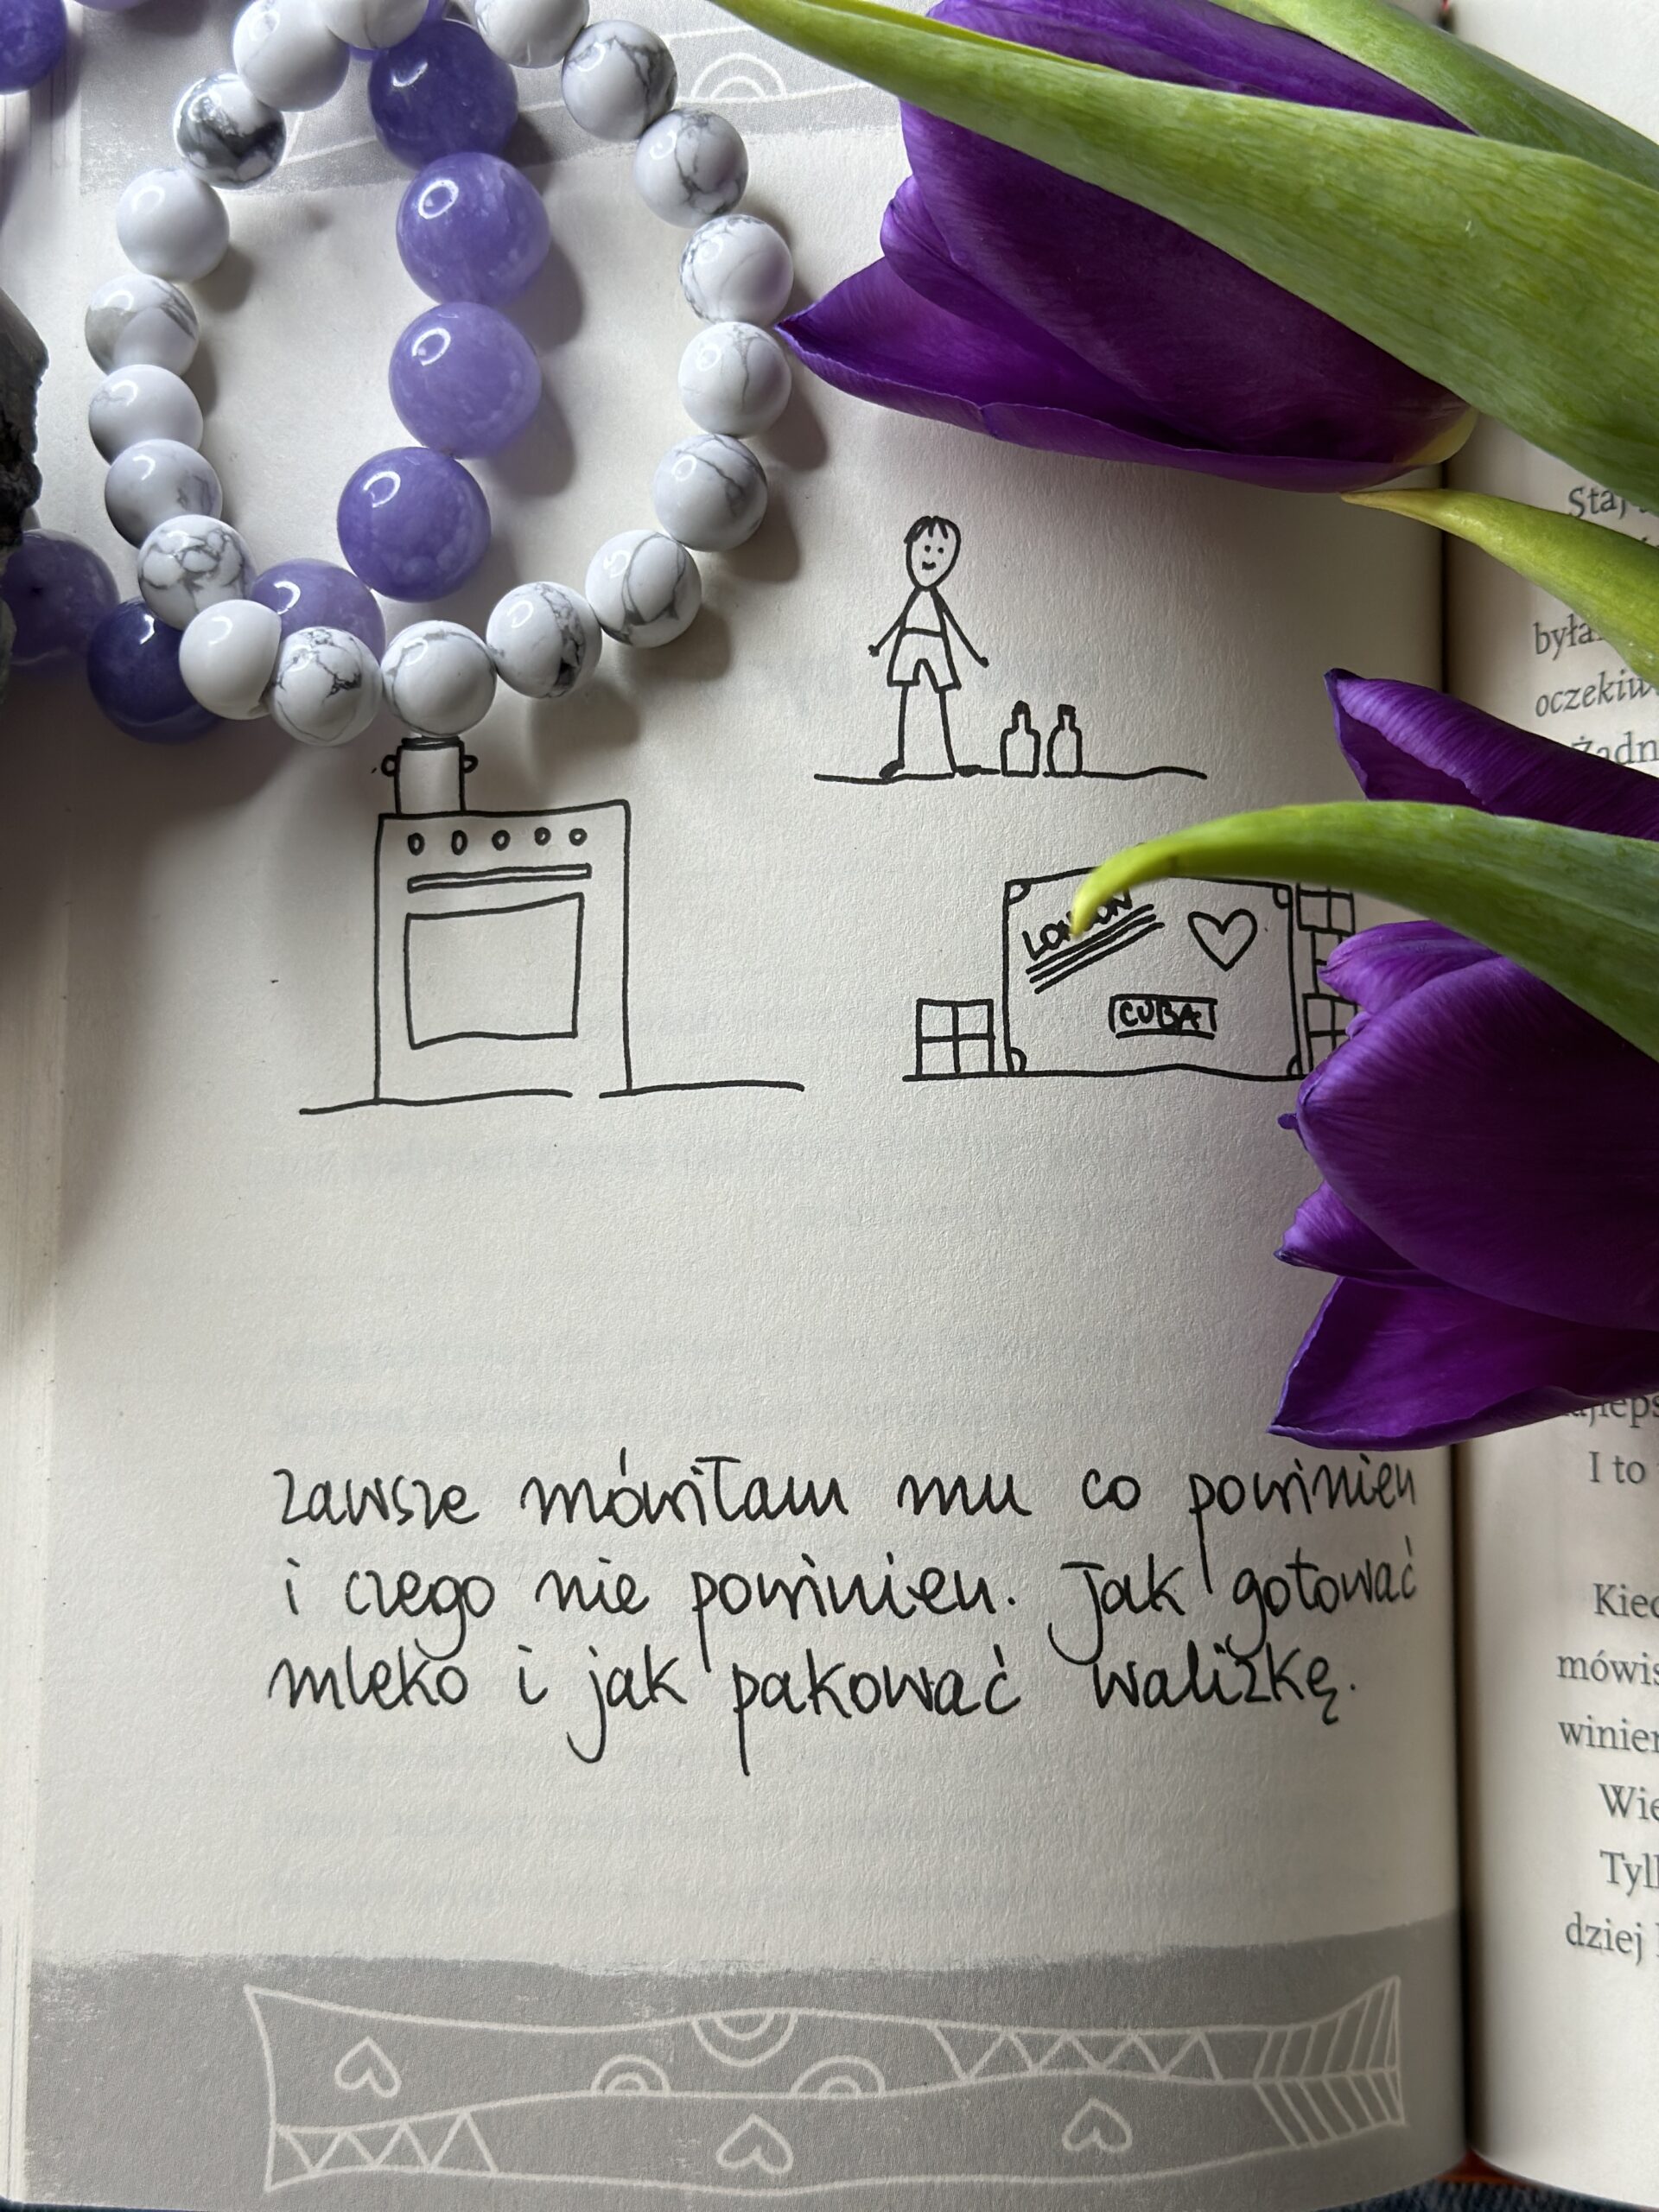 LONDON
CUBA
Zawsze mówiłam mu co powinien
i czego nie powinien. Jak gotować
mleko i jak pakować walizkę.
oczekiw
I to
Kied
mówis
winien
Wie
Tyl
dziej